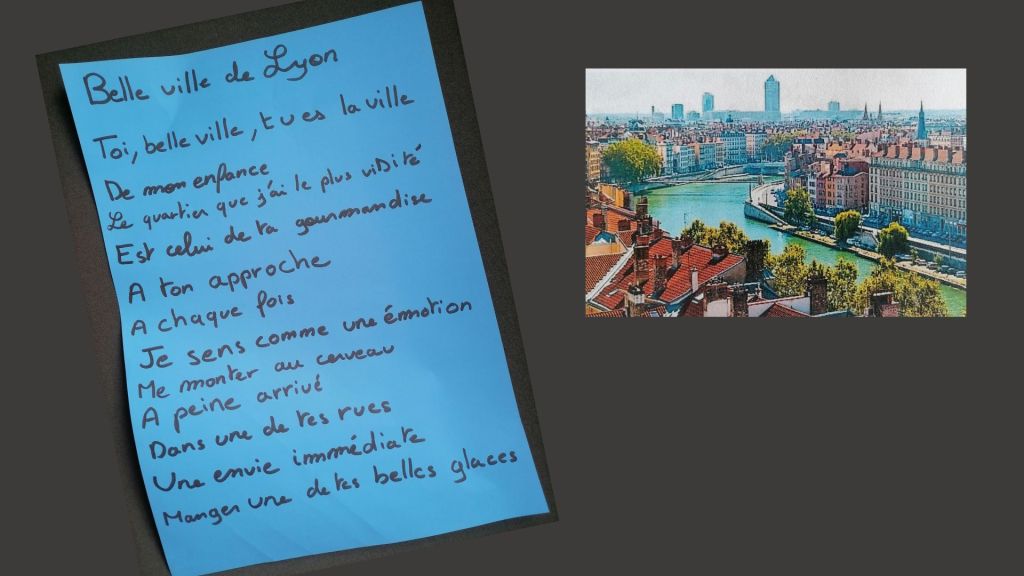 Belle ville de Lyon
Toi, belle ville, tu es la ville
De mon enfance
Le quartier que j'ai le plus visité
Est celui de ta gourmandise
A ton approche
A chaque fois
Je sens comme une émotion
Me monter au cerveau
A peine arrivé
Dans une de tes rues
Une envie immédiate
Manger une de tes belles glaces